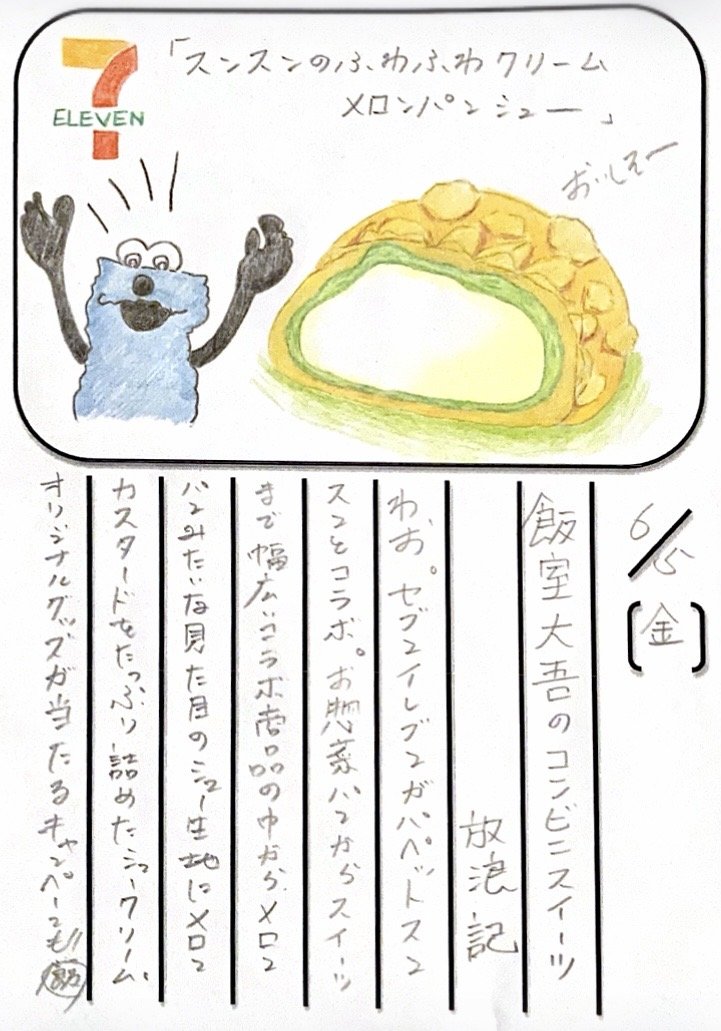 7
ELEVEN
「スンスンのふわふわクリーム
メロンパンシュー」
おいしそー
6/5
(金)
飯室大吾のコンビニスイーツ
放浪記
わお。セブンイレブンがパペットスン
スンとコラボ。お惣菜パンからスイーツ
まで幅広いコラボ商品の中からメロン
パンみたいな見た目のシュー生地にメロン
カスタードをたっぷり詰めたシュークリーム。
オリジナルグッズが当たるキャンペーンも!!